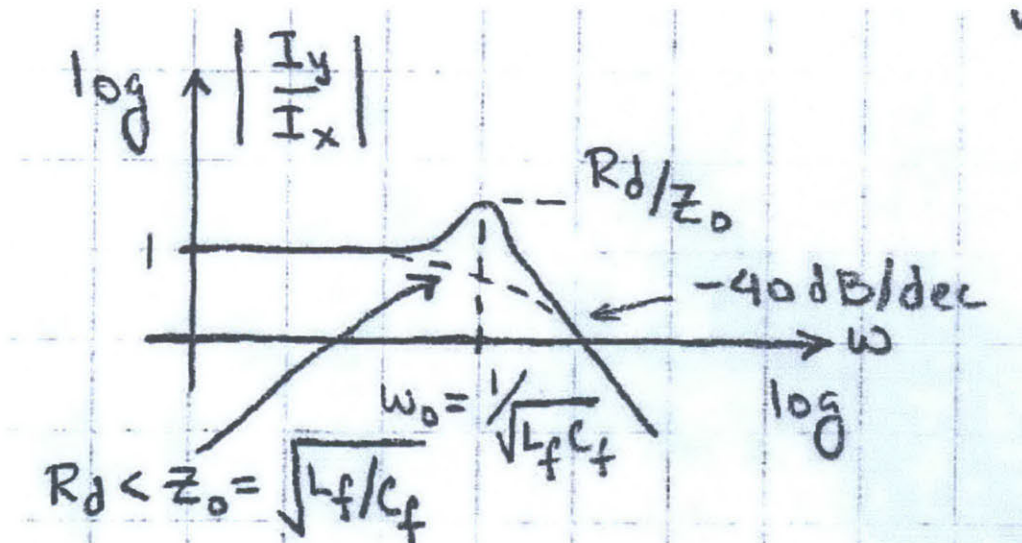 log |I_y/I_x|
R_d/Z_0
1
-40 dB/dec
ω
log
ω_0 = 1/√L_f C_f
R_d < Z_0 = √L_f/C_f